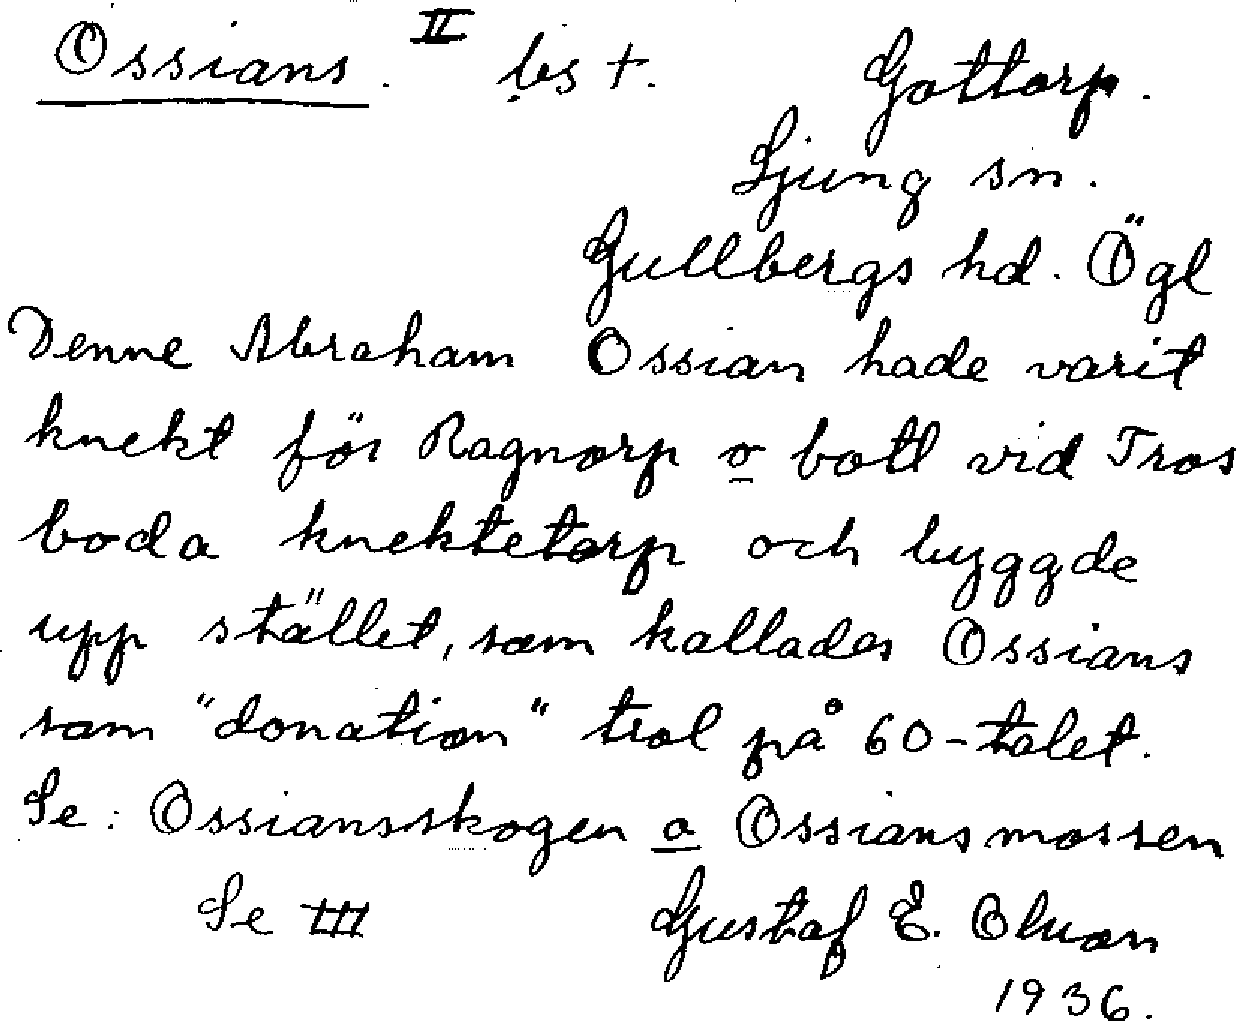 Ossians. II bs +. Gottorp.
Ljung sn.
Gullbergs hd. Ögl
Denne Abraham Ossian hade varit
knekt för Ragnorp o bott vid Tros
boda knektetorp och byggde
upp stället, som kallades Ossians
som "donation" trol på 60-talet.
Se: Ossiansskogen o Ossiansmossen
Se III Gustaf E. Olson
1936.